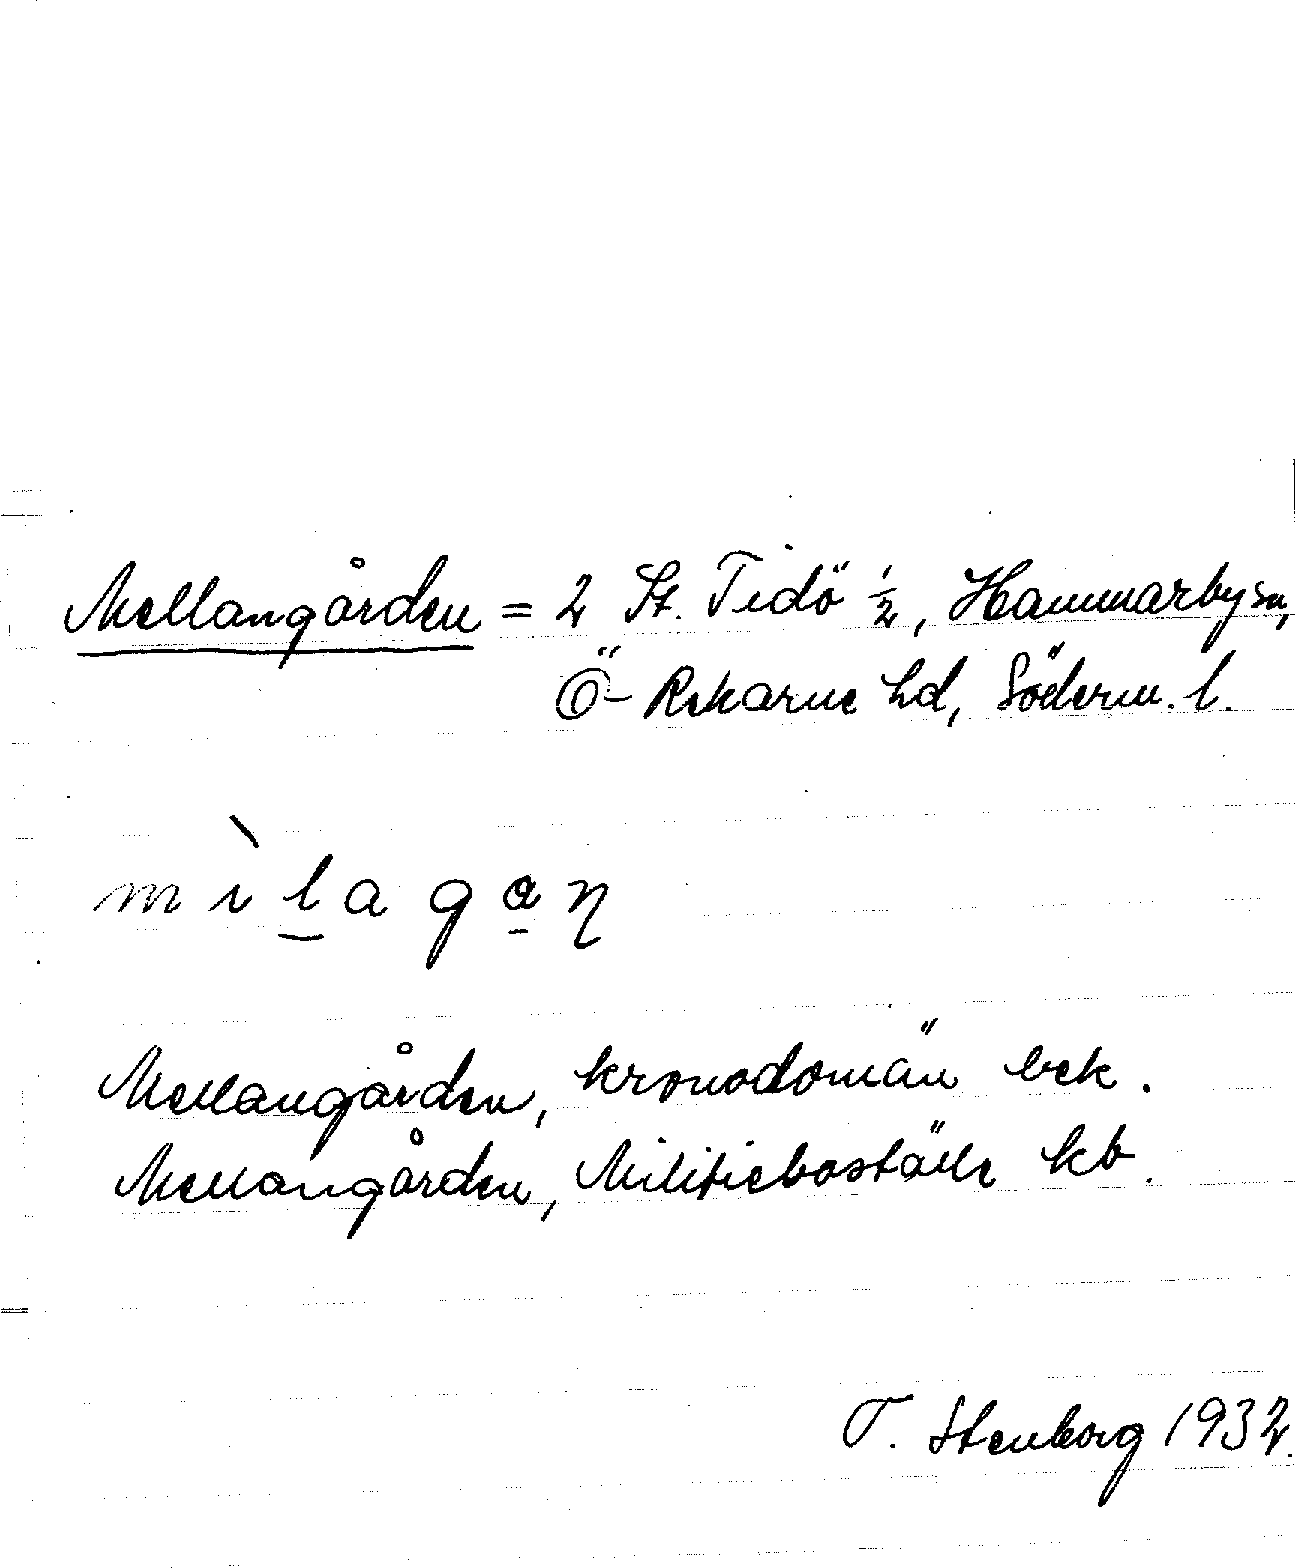 Mellangården = 2 St. Tidö ½, Hammarby sn,
Ö- Rekarne hd, Söderm. l.
mìlagaŋ
Mellangården, kronodomän bek.
Mellangården, Militieboställe kb.
T. Stenborg 1932.